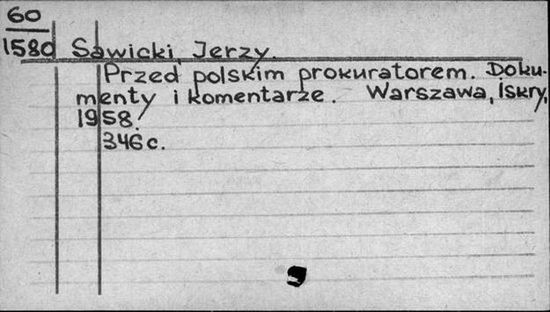 60
1580 Sawicki, Jerzy.
Przed polskim prokuratorem. Doku-
menty i komentarze. Warszawa, Iskry,
1958.
346 c.